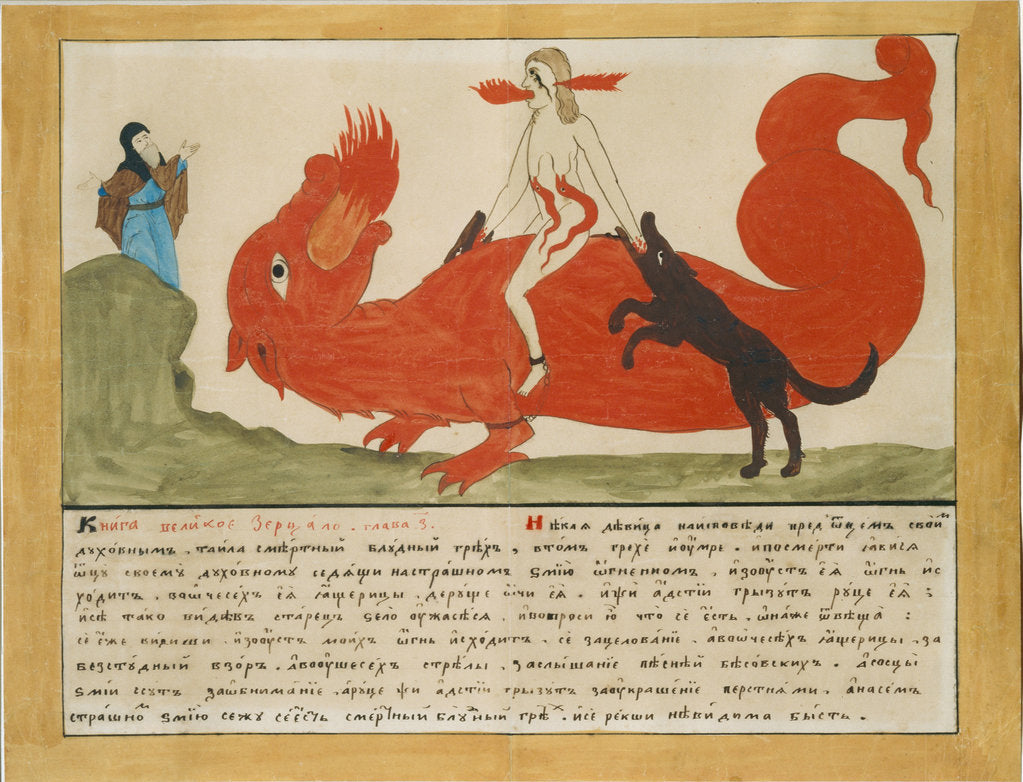 Кни́га вели́кое Зерца́ло . глава̀ з҃. Нѣ́кая дѣви́ца наи́сповѣди пред ѿц҃емъ свои́м
духо́внымъ , таи́ла сме́ртный блу́дный грѣ́хъ , втомъ грехе и҆оу҆мре . ипосме́рти ꙗ҆ви́ся
ѿц҃у̀ своемꙋ̀ духо́вному седя́щи настра́шномъ ѕмі́ю ѻ҆́гненномъ , и҆зоу҆́стъ ея҆̀ ѻ҆́гнь и҆с
хо́дитъ . воѻ҆чесе́хъ ея҆̀ ꙗ҆́щерицы , деру́ще ѻ҆́чи ея҆̀ . и҆пси а҆́дстіи грызу́тъ ру́це ея҆̀ :
и҆сѐ тако ви́дѣвъ ста́рецъ ѕело̀ оу҆жасе́ся . и҆вопроси ю̀ что сѐ е҆́сть . ѻ҆на́же ѿвѣща̀ :
сѐ е҆́же ви́диши . и҆зоу҆́стъ мои́хъ ѻ҆́гнь и҆схо́дитъ . сѐ зацелова́ніе . а҆воѻ҆чесе́хъ ꙗ҆́щерицы . за
безсту́дный взоръ . а҆воу҆шесе́хъ стрѣ́лы . заслы́шаніе пѣ́сней бѣсо́вскихъ . а҆сосцы̀
ѕміи ссу́тъ заѡ҆бнима́ніе , а҆ру́це пси а҆́дстіи грызу́тъ заоу҆краше́ніе перстня́ми . а҆насе́мъ
стра́шном ѕмі́ю сежу̀ се е҆́сть сме́ртный блу́дный грѣх . и҆сѐ ре́кши неви́дима бы́сть .